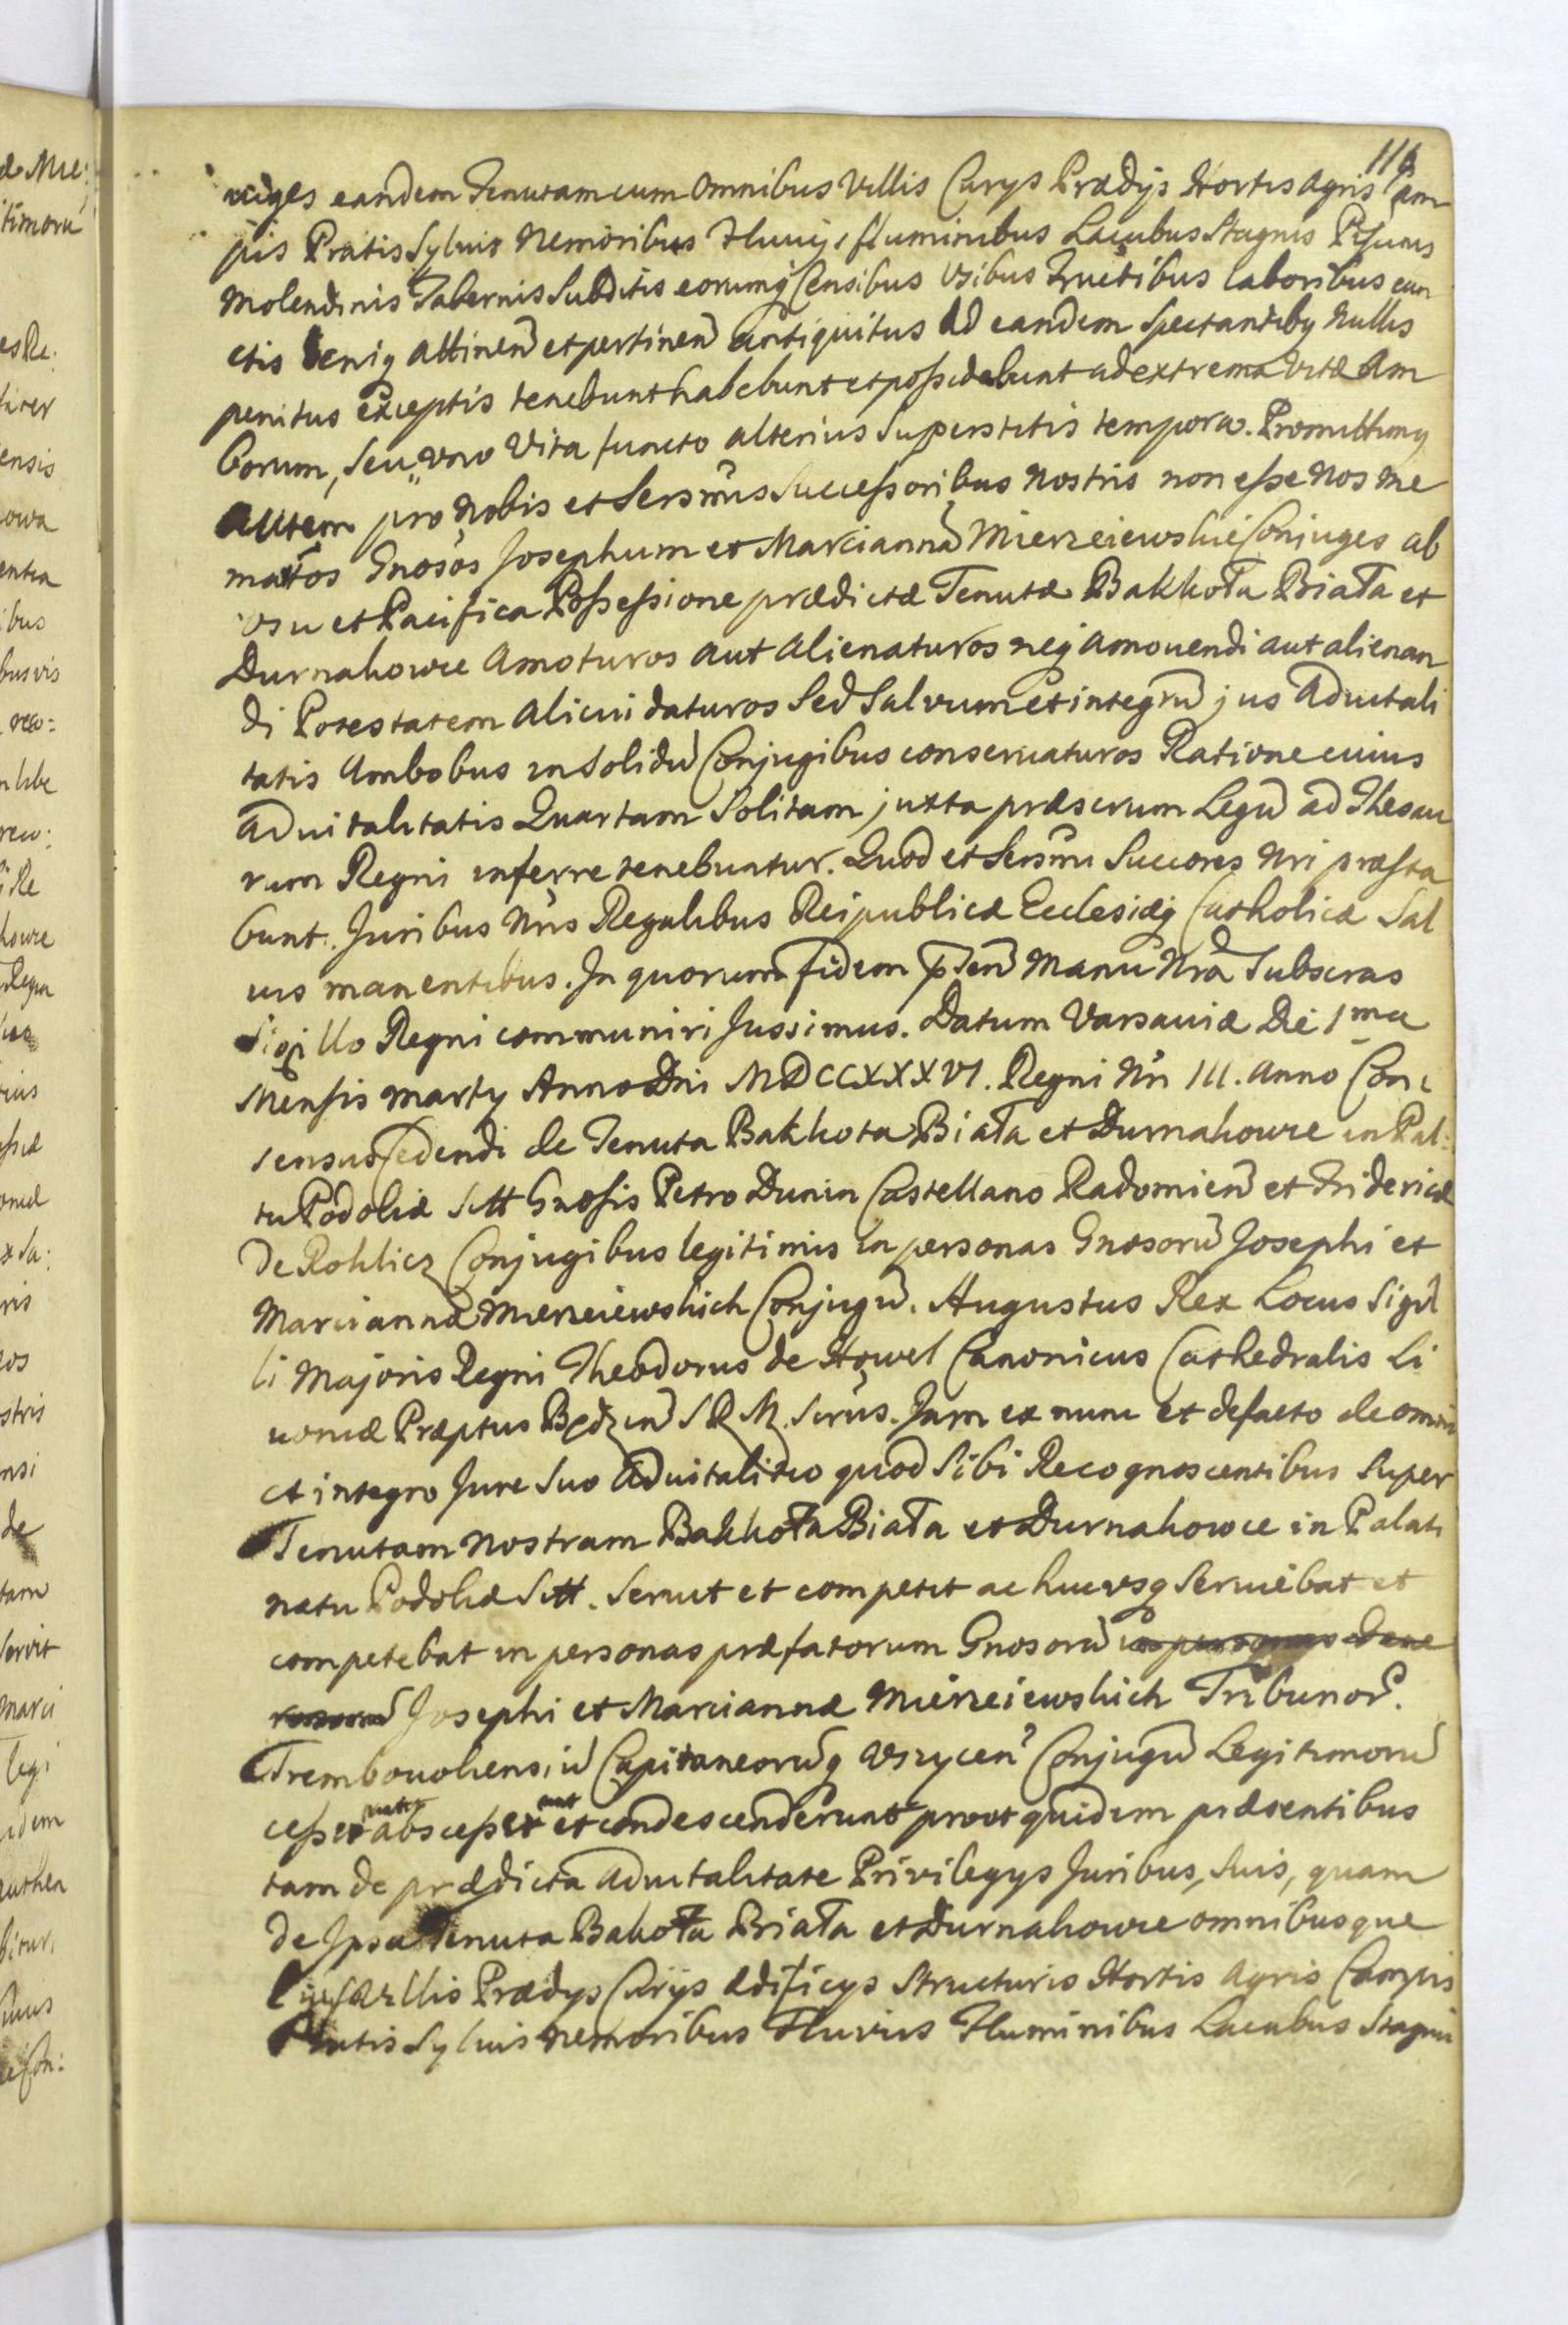 116
niges eandem Tenutam cum omnibus Villis Curys Prædijs Hortis Agris Cam
pis Pratis Sylvis Nemoribus Fluvijs fluminibus Lacubus Stagnis Piscinis
Molendinis Tabernis Subditis eorumq Censibus Usibus Fructibus laboribus cun
ctis deniq attinen et pertinen antiquitus ad eandem Spectantibq Nullis
penitus exceptis tenebunt habebunt et possidebunt ad extrema Vitæ Am
borum, seu uno Vita functo alterius Superstitis tempora. Promittimq
autem pro Nobis et Sersmis Successoribus Nostris non esse Nos me
matos Gnosos Josephum et Mariannã Mierzeiewskie Conjuges ab
usu et Pacifica Possessione prædictæ Tenutæ Bakkota Biała et
Durnahowce Amoturos aut Alienaturos neq Amovendi aut alienan
di Potestatem Alicui daturos Sed Salvum et integrũ jus Advitali
tatis Ambobus in Solidũ Conjugibus conservaturos Ratione cuius
advitalitatis Quartam Solitam juxta præscrum Legũ ad Thesau
rum Regni inferre tenebuntur. Quod et Sersmi Succores Nri præsta
bunt. Juribus Nris Regalibus Reipublicæ Ecclesiæq Catholicæ Sal
vis manentibus. In quorum fidem pñten Manu Nra Subscras
Sigillo Regni communiri Jussimus. Datum Varsaviæ Die 1ma
Mensis Marty Anno Dni MDCCXXXVI. Regni Nri III. Anno Con:
sensus Cedendi de Tenuta Bakkota Biała et Durnahowce in Pal:
tu Podoliæ Sitt Gnosis Petro Dunin Castellano Radomien et Friderica
De Rohlicz Conjugibus legitimis in personas Gnosorũ Josephi et
Mariannæ Mierzeiewskich Conjugũ. Augustus Rex Locus Sigil
li Majoris Regni Theodorus de Howel Canonicus Cathedralis Li
voniæ Præptus Będzin S R M. Scrius. Jam ex nunc et de facto de omni
et integro Jure Suo Advitalitio quod Sibi Recognoscentibus Super
Tenutam nostram Bakkota Biała et Durnahowce in Palati
natu Podoliæ Sitt. Servit et competit ac hucusq Serviebat et
competebat in personas præfatorum Gnosorũ in personas Gene
rosorũ Josephi et Mariannæ Mierzeiewskich Tribunor.
Trembowliensiũ Capitaneorũq Uszycen Conjugũ Legitimorũ
cesserunt abscesserunt et condescenderunt prout quidem præsentibus
tam de prædicta Advitalitate Privilegys Juribus, Suis, quam
de Ipsa Tenuta Bakota Biała et Durnahowce omnibusque
Villis Prædys Curijs ædificys Structuris Hortis Agris Campis
Pratis Sylvis Nemoribus Fluvius Fluminibus Lacubus Stagni